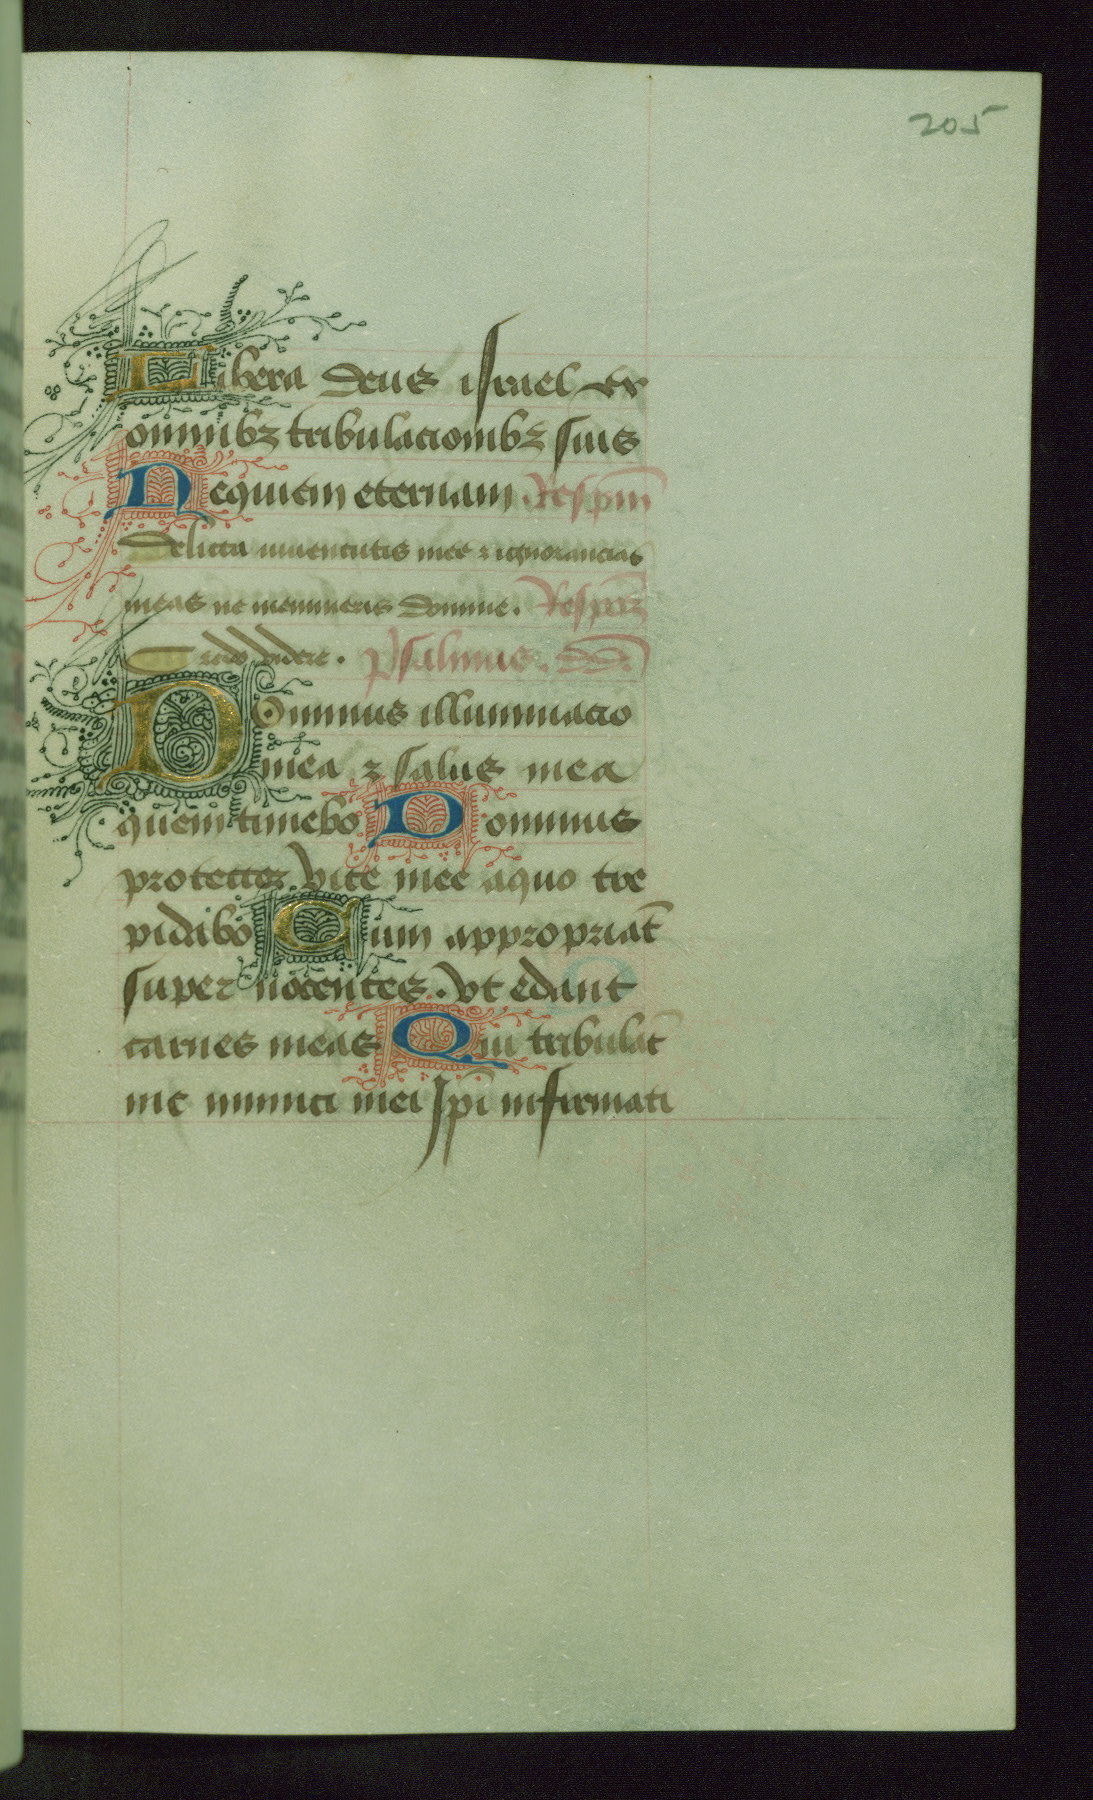 205
Libera deus israel ex
omnibꝫ tribulacionibꝫ suis
Requiem eternam. Respm̄
Delicta iuuentutis mee ⁊ ignorancias
meas ne memineris domine.
Credo videre. psalmus. dd̄.
Dominus illuminacio
mea ⁊ salus mea
quem timebo Dominus
protector vite mee aquo tre
pidabo Cum appropriāt
super nocentes. vt edant
carnes meas Qui tribulāt
me inimici mei ip̄i infirmati